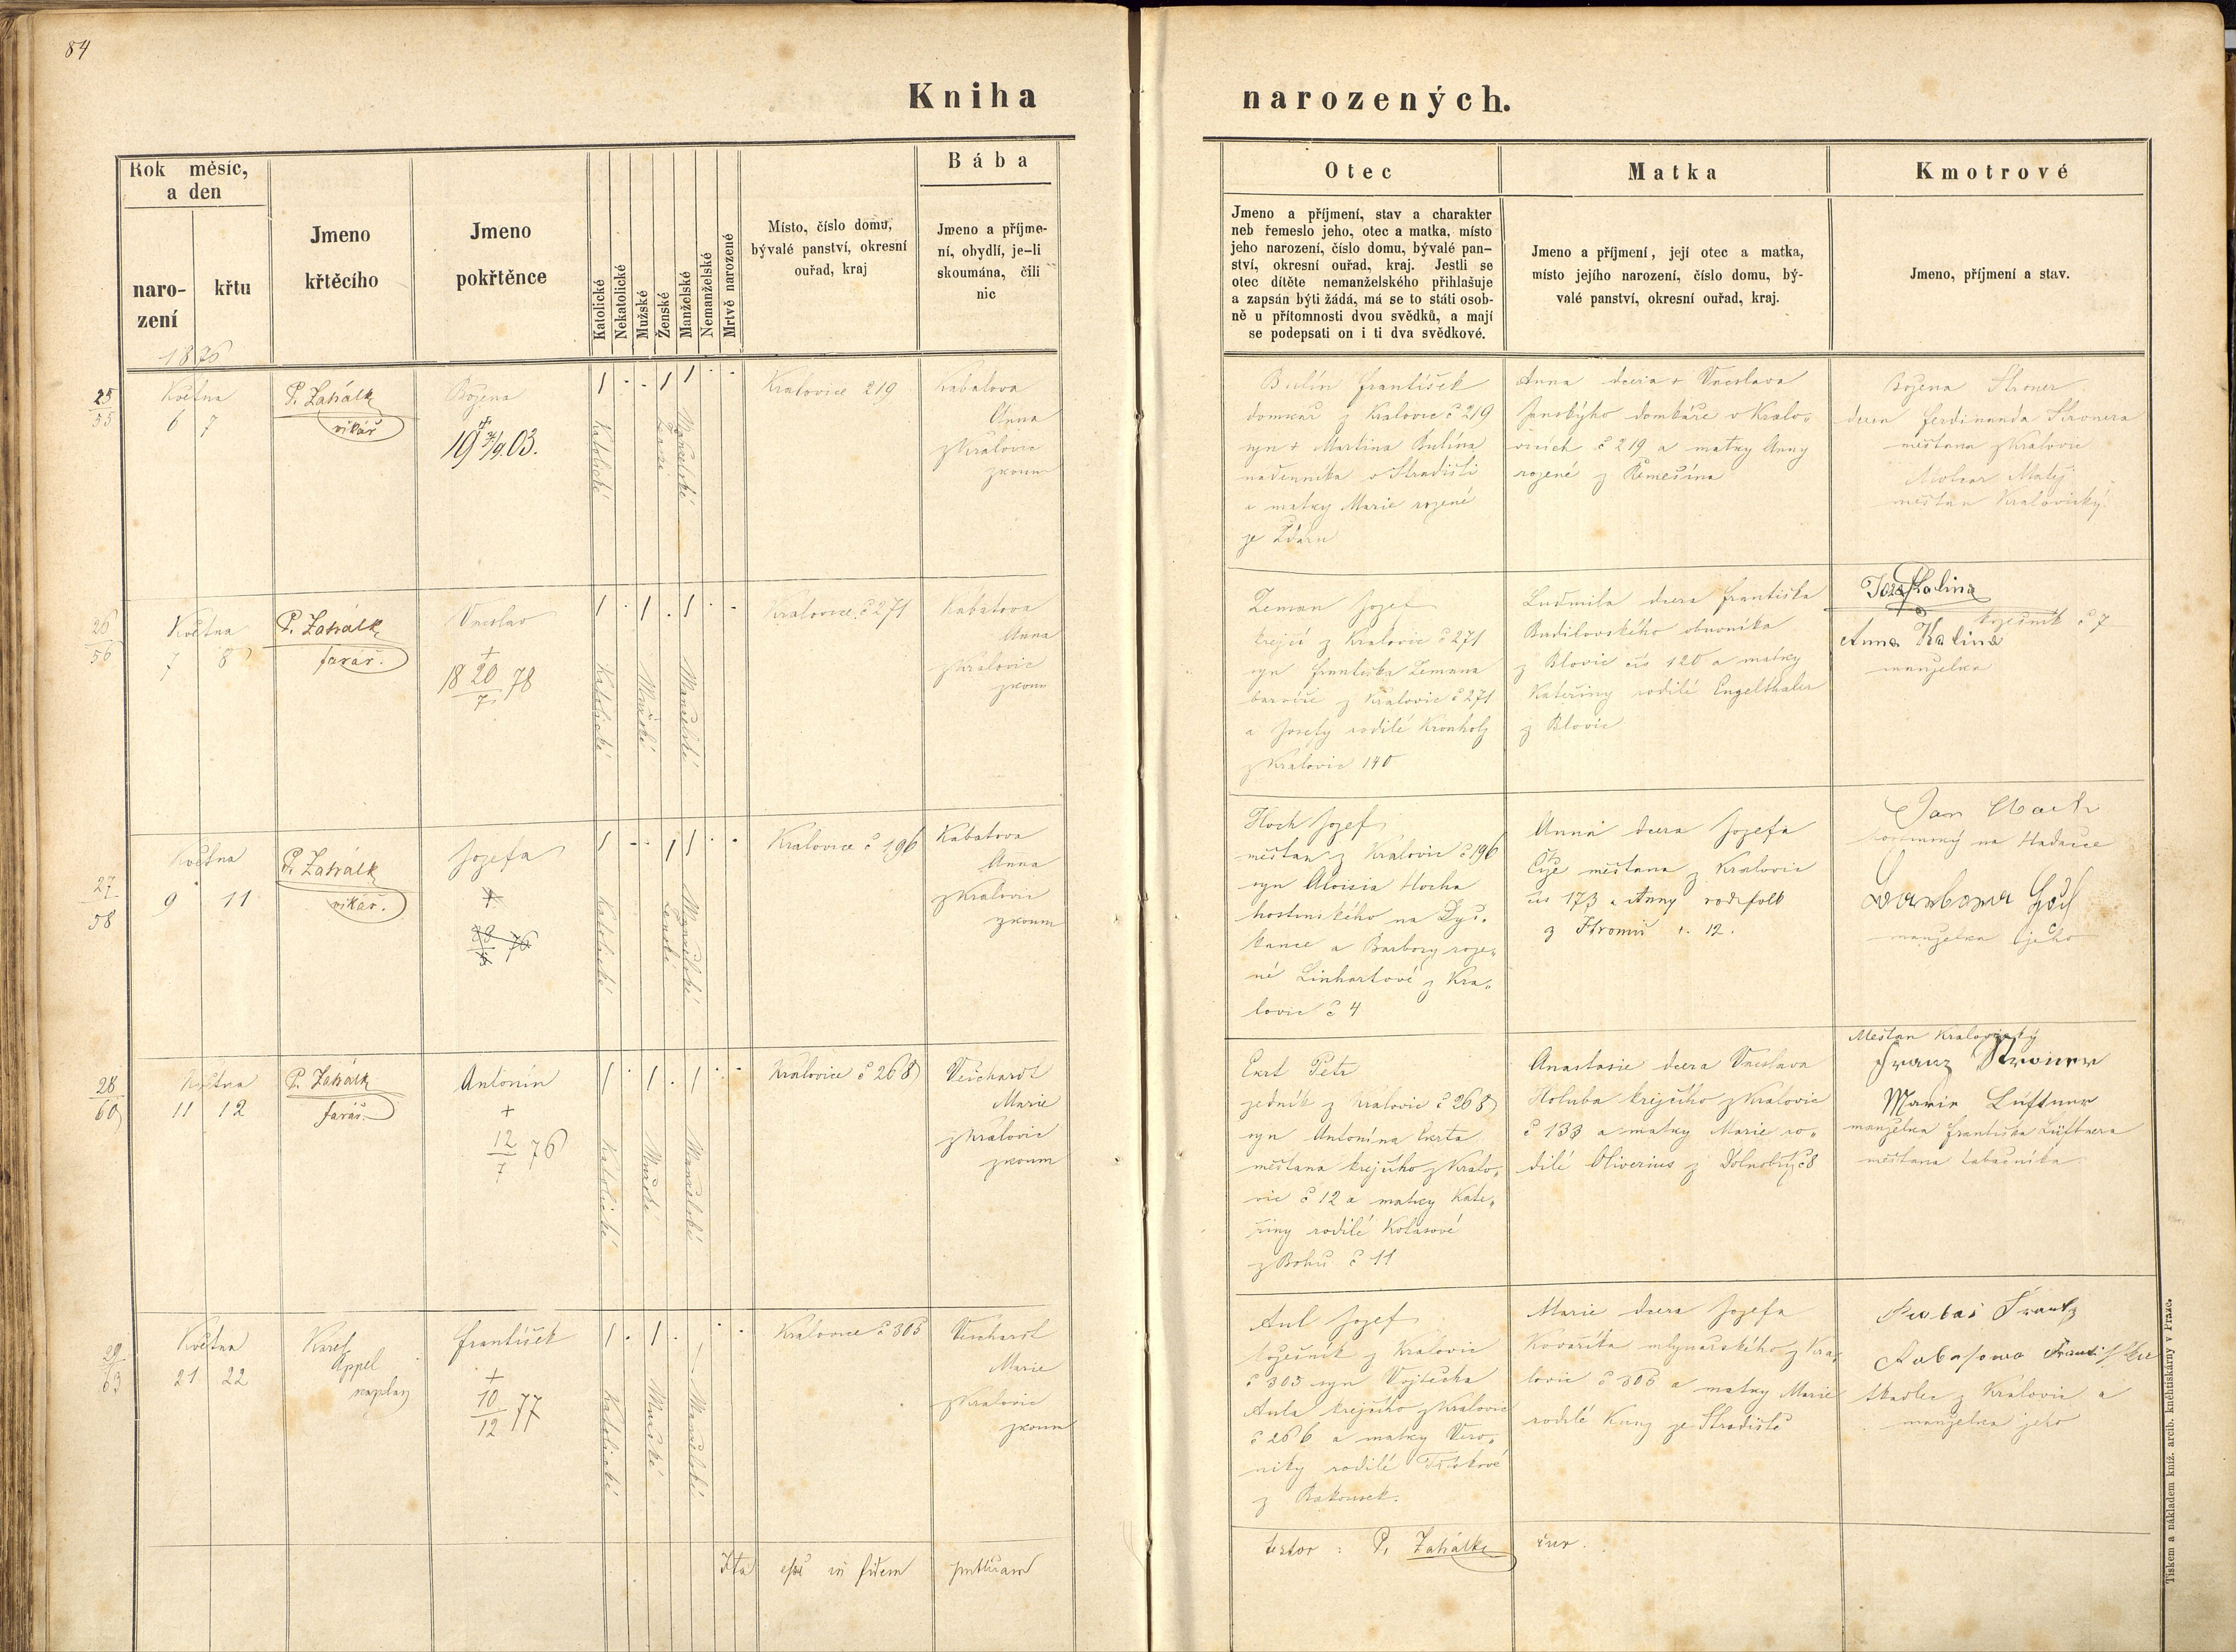 84
Kniha
narozených.
Rok měsíc,
a den
naro-
zení
křtu
Jmeno
křtěcího
Jmeno
pokřtěnce
Katolické
Nekatolické
Mužské
Ženské
Manželské
Nemanželské
Mrtvě narozené
Místo, číslo domu,
bývalé panství, okresní
ouřad, kraj
Bába
Jmeno a příjme-
ní, obydlí, je-li
skoumána, čili
nic
Otec
Jmeno a příjmení, stav a charakter
neb řemeslo jeho, otec a matka, místo
jeho narození, číslo domu, bývalé pan-
ství, okresní ouřad, kraj. Jestli se
otec dítěte nemanželského přihlašuje
a zapsán býti žádá, má se to státi osob-
ně u přítomnosti dvou svědků, a mají
se podepsati on i ti dva svědkové.
Matka
Jmeno a příjmení, její otec a matka,
místo jejího narození, číslo domu, bý-
valé panství, okresní ouřad, kraj.
Kmotrové
Jmeno, příjmení a stav.
1876
25
55
Května
6 7
P. Zahálka
vikář
Božena
19 03.
Katolické
Ženské
Manželské
Kralovice 219
Kabatova
Anna
z Kralovic
zkoum
Bulín František
domkář z Kralovic č 219
syn + Martina Bulína
nádenníka v Hradišti
a matky Marie rozené
ze Žďáru
Anna dcera + Václava
domkáře v Kralo-
vicích č 219 a matky Anny
rozené z Řemešína
Božena Stroner
dcera Ferdinanda Stronera
měšťana z Kralovic
Matěj
měšťan Kralovický
26
56
Května
7 8
P. Zahálka
farář.
Václav
+
18 20/7 78
Katolické
Mužské
Manželské
Kralovice č 271
Kabatova
Anna
z Kralovic
zkoum
Zeman Jozef
krejčí z Kralovic č 271
syn Františka Zemana
barvíře z Kralovic č 271
a Josefy rodilé Kronholz
z Kralovic 140
Ludmila dcera Františka
Budilovského obuvníka
z Blovic čís 120 a matky
Kateřiny rodilé Engelthaler
z Blovic
Josef Kalina
č 7
Anna Kalina
manželka
27
58
Května
9 11
P. Zahálka
vikář.
Jozefa
+
76
Katolické
Ženské
Manželské
Kralovice č 196
Kabatova
Anna
z Kralovic
zkoum
Hoch Jozef
měšťan z Kralovic č 196
syn Aloisia Hocha
hostinského na Dys-
kance a Barbory roze-
né Linhartové z Kra-
lovic č 4
Anna dcera Jozefa
Číže měšťana z Kralovic
čís 173 a Anny rod
z Hromic č. 12.
Jan
na Hadačce
Barbora
manželka jeho
28
60
Května
11 12
P. Zahálka
farář.
Antonín
+
12/7 76
Katolické
Mužské
Manželské
Kralovice č 268
Veichardt
Marie
z Kralovic
zkoum
Ekrt Petr
zedník z Kralovic č 268
syn Antonína Ekrta
měšťana krejčího z Kralo-
vic č 12 a matky Kate-
řiny rodilé Kolářové
z Bohů č 11
Anastasie dcera Václava
Holuba krejčího z Kralovic
č 133 a matky Marie ro-
dilé Oliverius z č 8
Mešťan Kralovický
Franz Stroner
Marie Luftner
manželka Františka Lüftnera
měšťana tabačníka
29
63
Května
21 22
Karel
Appel
kaplan
František
+
10/12 77
Katolické
Mužské
Manželské
Kralovice č 303
Veichardt
Marie
z Kralovic
zkoum
Aul Jozef
z Kralovic
č 303 syn Vojtěcha
Aula krejčího z Kralovic
č 266 a matky Vero-
niky rodilé
z Rakousek.
Marie dcera Jozefa
Kovaříka mlynářského z Kra-
lovic č 303 a matky Marie
rodilé Kunz ze Hradiště
Frantz
tkadlec z Kralovic a
manželka jeho
Ita esse in fidem
testor: P. Zahálka
Tiskem a nákladem kníž. arcib. kněhtiskárny v Praze.